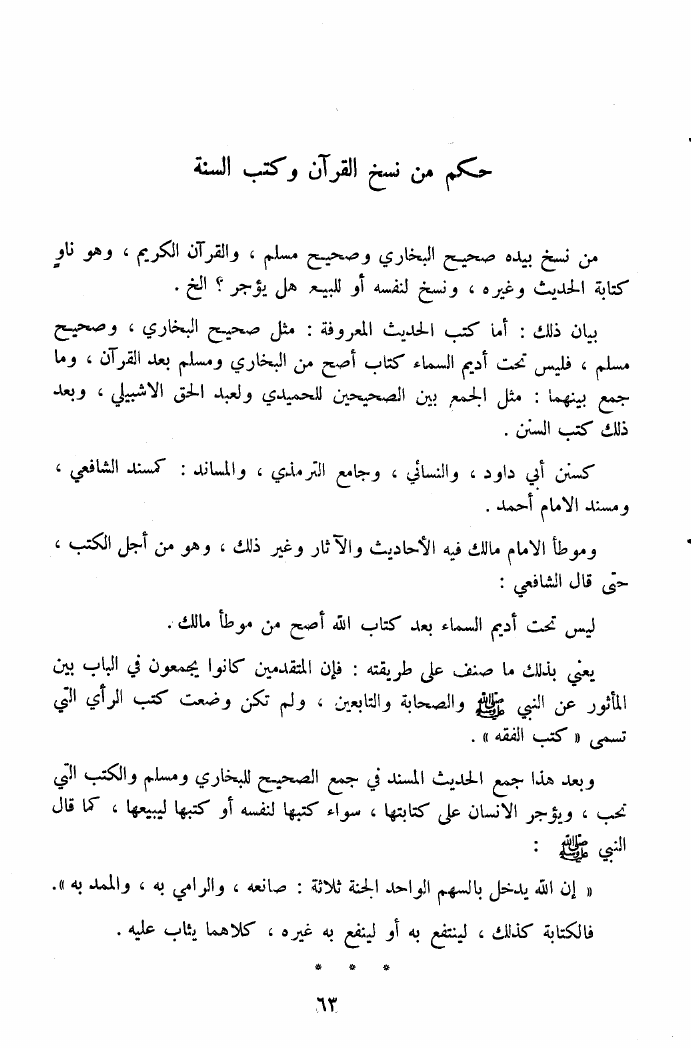 حكم من نسخ القرآن وكتب السنة
من نسخ بيده صحيح البخاري وصحيح مسلم ، والقرآن الكريم ، وهو ناوٍ
كتابة الحديث وغيره ، ونسخ لنفسه أو للبيع هل يؤجر ؟ الخ .
بيان ذلك : أما كتب الحديث المعروفة : مثل صحيح البخاري ، وصحيح
مسلم ، فليس تحت أديم السماء كتاب أصح من البخاري ومسلم بعد القرآن ، وما
جمع بينهما : مثل الجمع بين الصحيحين للحميدي ولعبد الحق الاشبيلي ، وبعد
ذلك كتب السنن .
كسنن أبي داود ، والنسائي ، وجامع الترمذي ، والمساند : كمسند الشافعي ،
ومسند الامام أحمد .
وموطأ الامام مالك فيه الأحاديث والآثار وغير ذلك ، وهو من أجل الكتب ،
حتى قال الشافعي :
ليس تحت أديم السماء بعد كتاب الله أصح من موطأ مالك .
يعني بذلك ما صنف على طريقته : فإن المتقدمين كانوا يجمعون في الباب بين
المأثور عن النبي ﷺ والصحابة والتابعين ، ولم تكن وضعت كتب الرأي التي
تسمى « كتب الفقه » .
وبعد هذا جمع الحديث المسند في جمع الصحيح للبخاري ومسلم والكتب التي
تحب ، ويؤجر الانسان على كتابتها ، سواء كتبها لنفسه أو كتبها ليبيعها ، كما قال
النبي ﷺ :
« إن الله يدخل بالسهم الواحد الجنة ثلاثة : صانعه ، والرامي به ، والممد به ».
فالكتابة كذلك ، لينتفع به أو لينفع به غيره ، كلاهما يثاب عليه .
* * *
٦٣